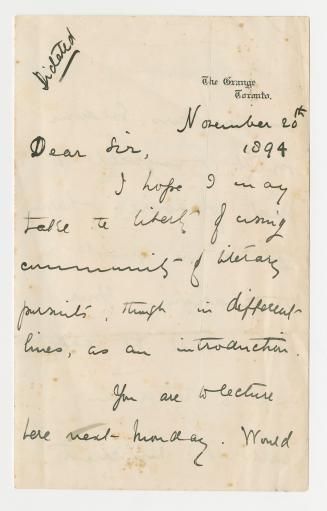 Dictated
The Grange
Toronto.
November 20th
1894
Dear Sir,
I hope I may
take the liberty of using
community of literary
pursuits, though in different
lines, as an introduction.
You are to lecture
here next Monday. Would